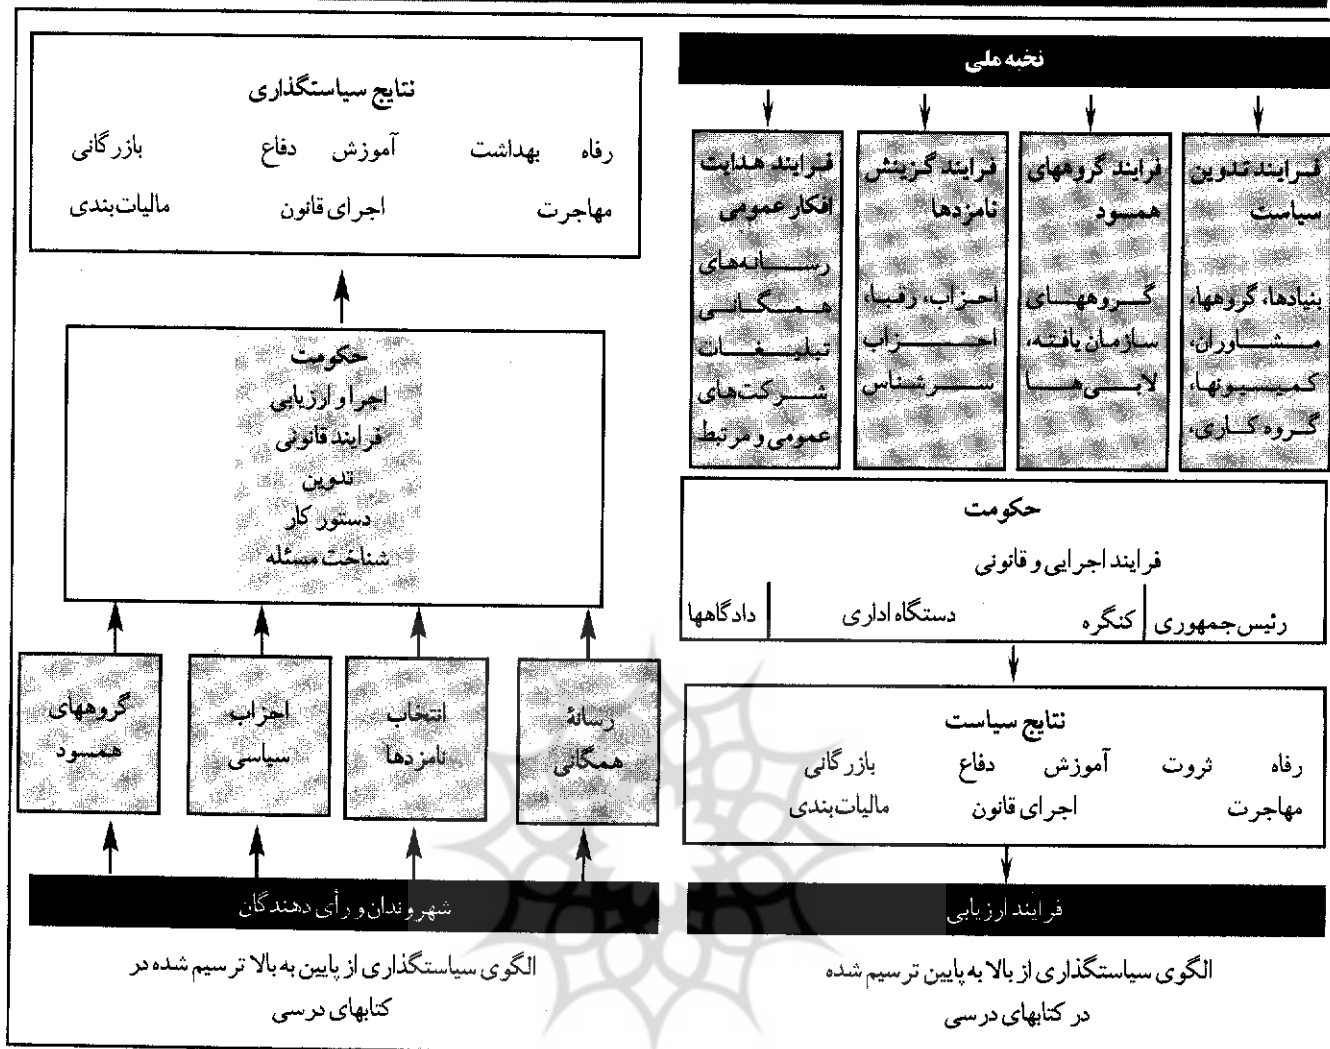 نخبه ملی
فرایند تدوین
سیاست
بنیادها، گروهها،
مشاوران،
کمیسیونها،
گروه کاری،
فرایند گروههای
همسود
گروههای
سازمان یافته،
لابی‌ها
فرایند گزینش
نامزدها
احزاب، رقبا،
احزاب
سرشناس
فرایند هدایت
افکار عمومی
رسانه‌های
همگانی
تبلیغات
شرکت‌های
عمومی و مرتبط
حکومت
فرایند اجرایی و قانونی
رئیس‌جمهوری کنگره دستگاه اداری دادگاهها
نتایج سیاست
رفاه ثروت آموزش دفاع بازرگانی
مهاجرت اجرای قانون مالیات‌بندی
فرایند ارزیابی
الگوی سیاستگذاری از بالا به پایین ترسیم شده
در کتابهای درسی
نتایج سیاستگذاری
رفاه بهداشت آموزش دفاع بازرگانی
مهاجرت اجرای قانون مالیات‌بندی
حکومت
اجرا و ارزیابی
فرایند قانونی
تدوین
دستور کار
شناخت مسئله
رسانهٔ
همگانی
انتخاب
نامزدها
احزاب
سیاسی
گروههای
همسود
شهروندان و رأی دهندگان
الگوی سیاستگذاری از پایین به بالا ترسیم شده در
کتابهای درسی